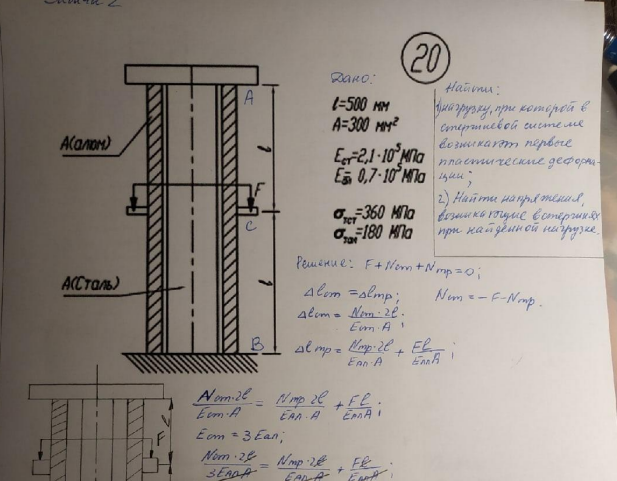 20
A
А(алюм)
l
F
C
А(Сталь)
l
B
Дано:
l=500 мм
A=300 мм²
Eст=2,1·10⁵МПа
0,7·10⁵МПа
σтст=360 МПа
σтал=180 МПа
Найти:
1) нагрузку, при которой в
стержневой системе
возникают первые
пластические деформа-
ции;
2) Найти напряжения,
возникающие в стержнях
при найденной нагрузке.
Решение: F+Nст+Nтр=0;
Δlст=Δlтр; Nст=-F-Nтр.
Δlст=Nст·2l/Eст·A;
Δlтр=Nтр·2l/Eал·A+Fl/EалA;
Nст·2l/Eст·A=Nтр·2l/Eал·A+Fl/EалA;
Eст=3Eал;
Nст·2l/3EалA=Nтр·2l/EалA+Fl/EалA;
F